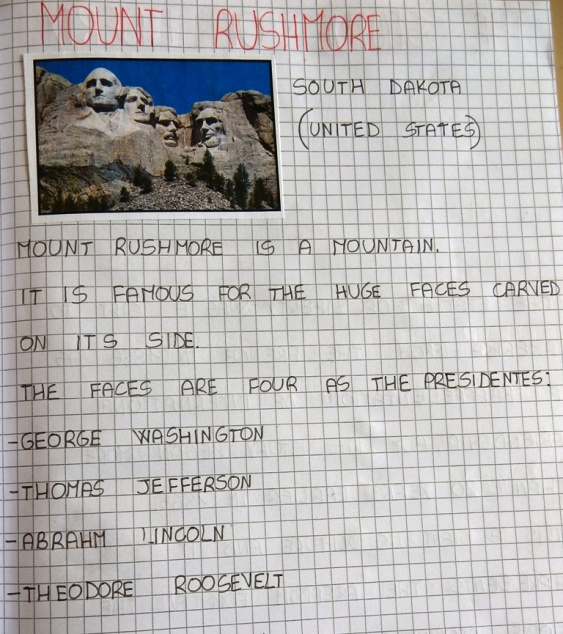 MOUNT RUSHMORE
SOUTH DAKOTA
(UNITED STATES)
MOUNT RUSHMORE IS A MOUNTAIN.
IT IS FAMOUS FOR THE HUGE FACES CARVED
ON ITS SIDE.
THE FACES ARE FOUR AS THE PRESIDENTES:
-GEORGE WASHINGTON
-THOMAS JEFFERSON
-ABRAHM LINCOLN
-THEODORE ROOSEVELT